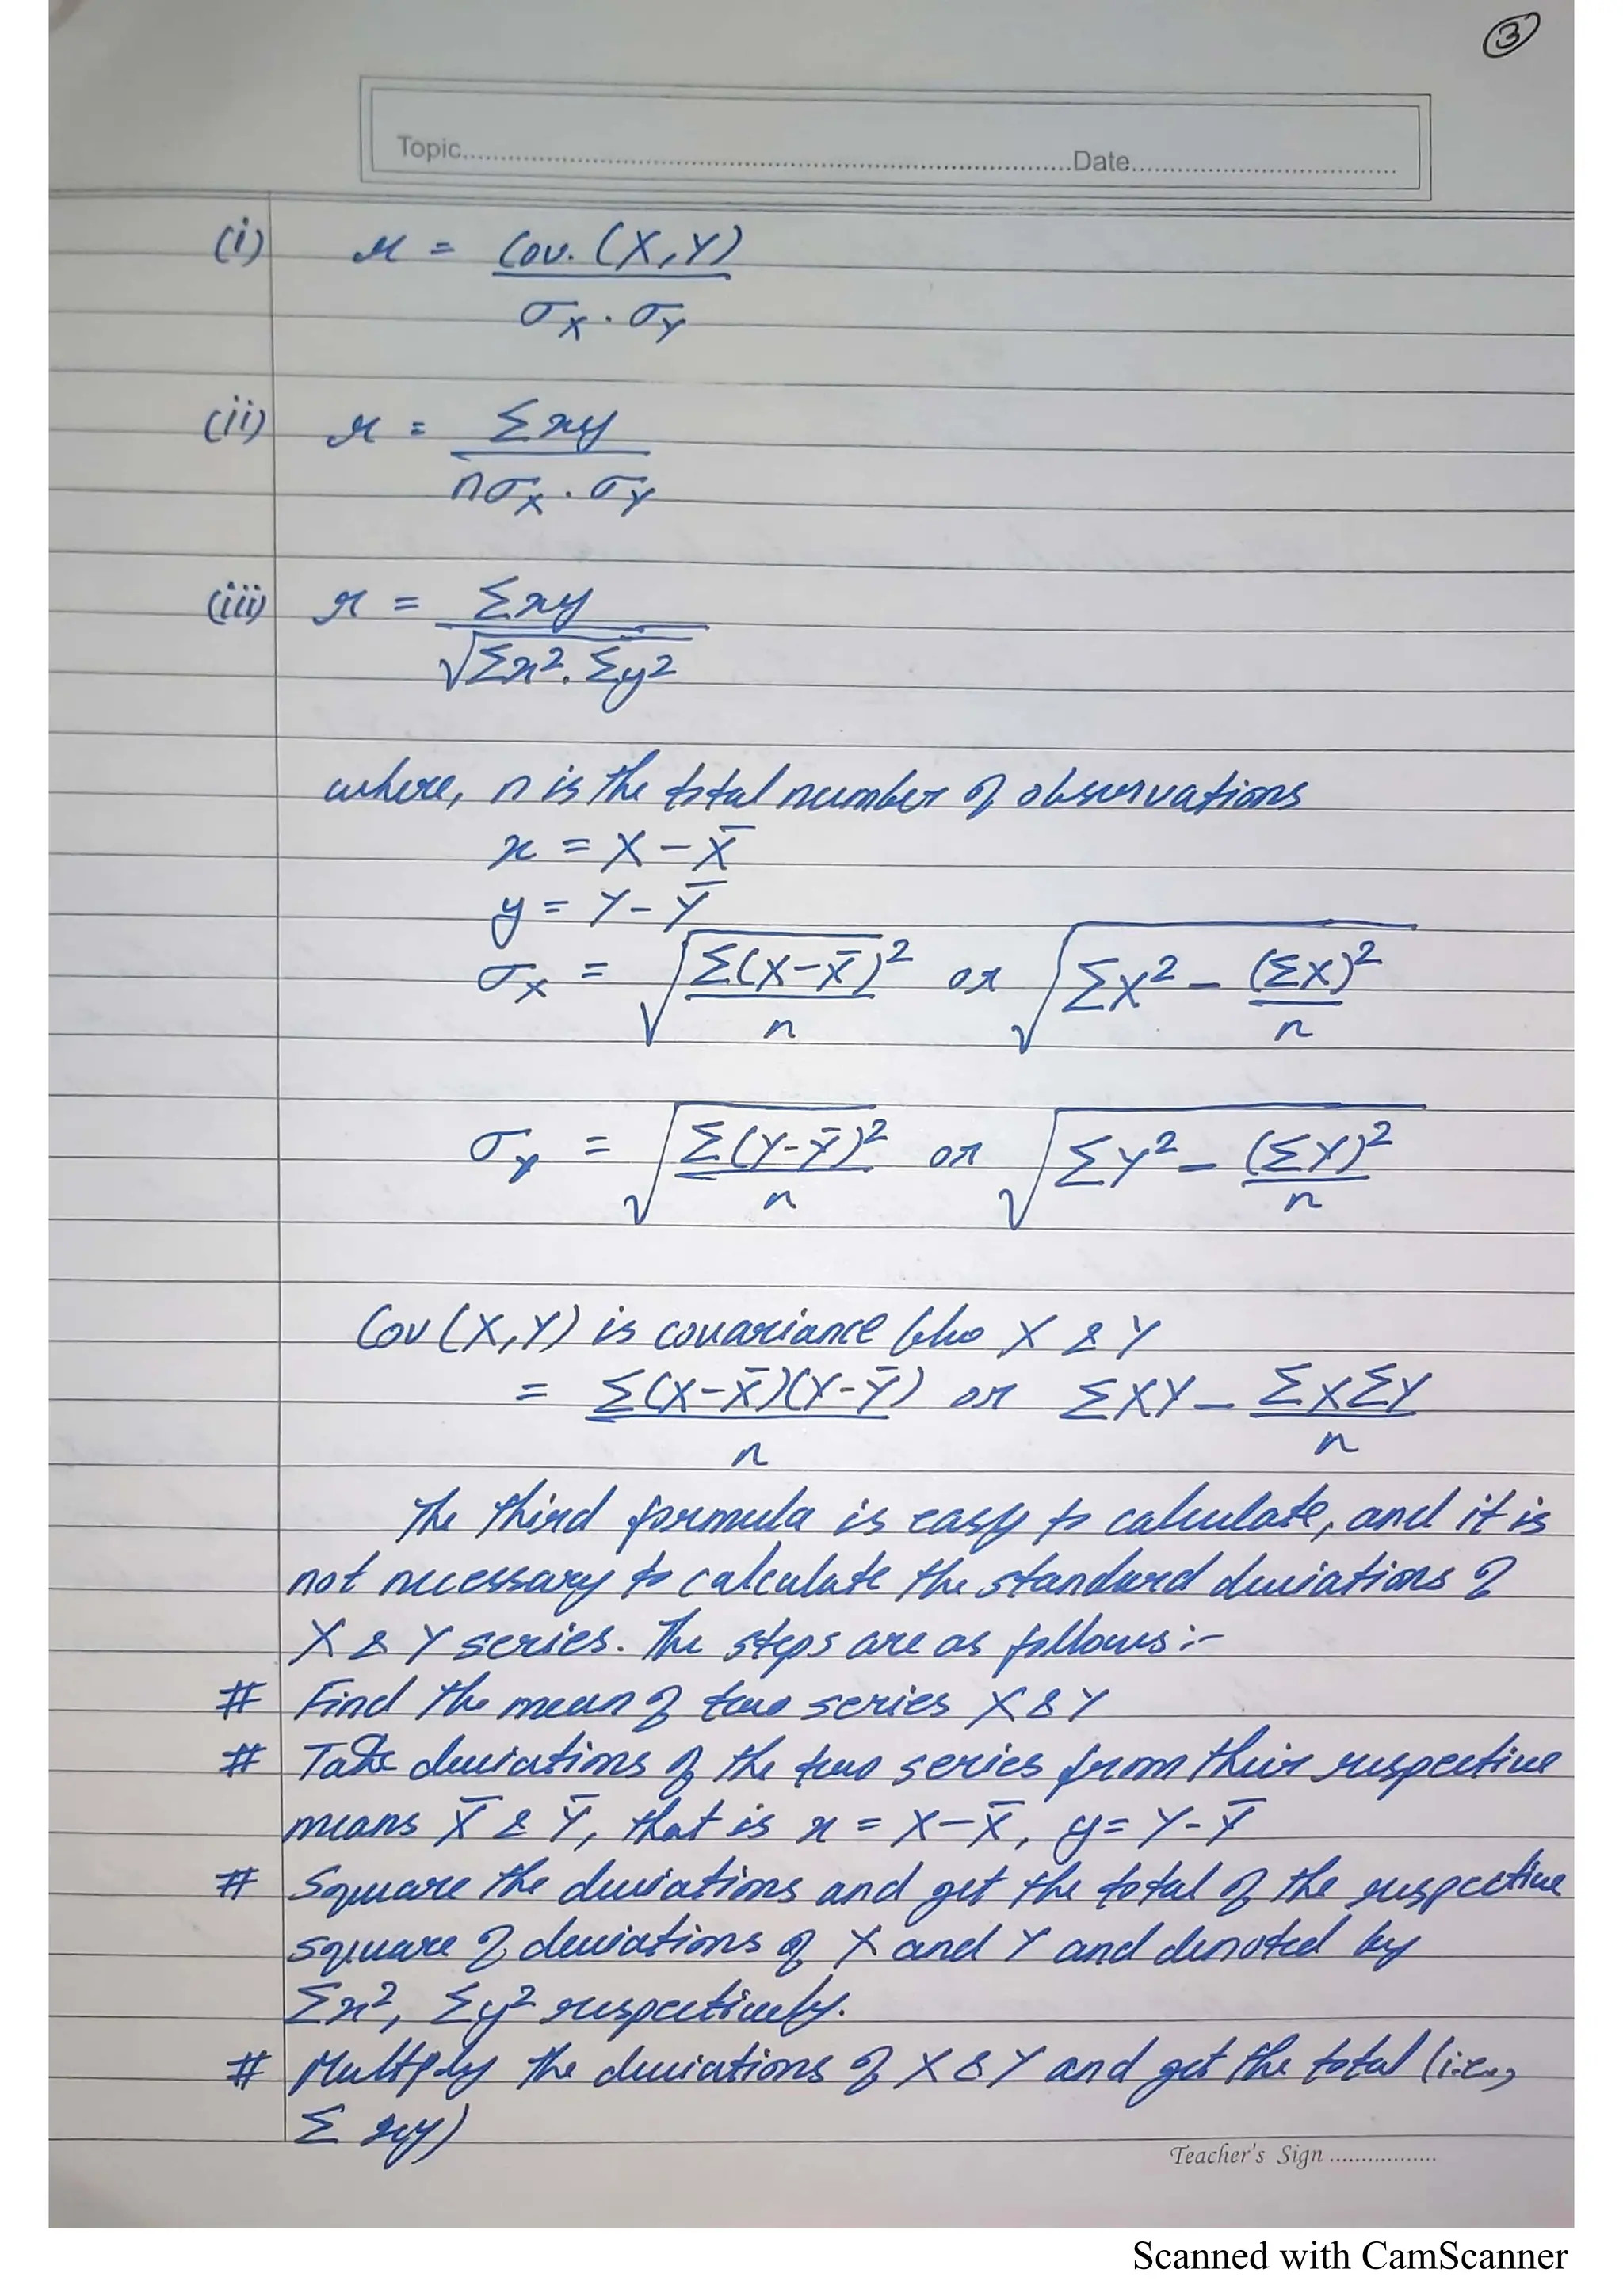 3
Topic Date
(i) r = Cov. (X,Y) / σX . σY
(ii) r = Σxy / nσX . σY
(iii) r = Σxy / √Σx². Σy²
where, n is the total number of observations
x = X – X̄
y = Y – Ȳ
σX = √(Σ(X–X̄)² / n) or √(ΣX² – (ΣX)² / n)
σY = √(Σ(Y–Ȳ)² / n) or √(ΣY² – (ΣY)² / n)
Cov (X,Y) is covariance b/w X & Y
= Σ(X–X̄)(Y–Ȳ) / n or ΣXY – ΣXΣY / n
The third formula is easy to calculate, and it is
not necessary to calculate the standard deviations of
X & Y series. The steps are as follows :–
# Find the mean of two series X & Y
# Take deviations of the two series from their respective
means X̄ & Ȳ, that is x = X–X̄, y = Y–Ȳ
# Square the deviations and get the total of the respective
square of deviations of X and Y and denoted by
Σx², Σy² respectively.
# Multply the deviations of X & Y and get the total (i.e.,
Σ xy)
Teacher's Sign
Scanned with CamScanner